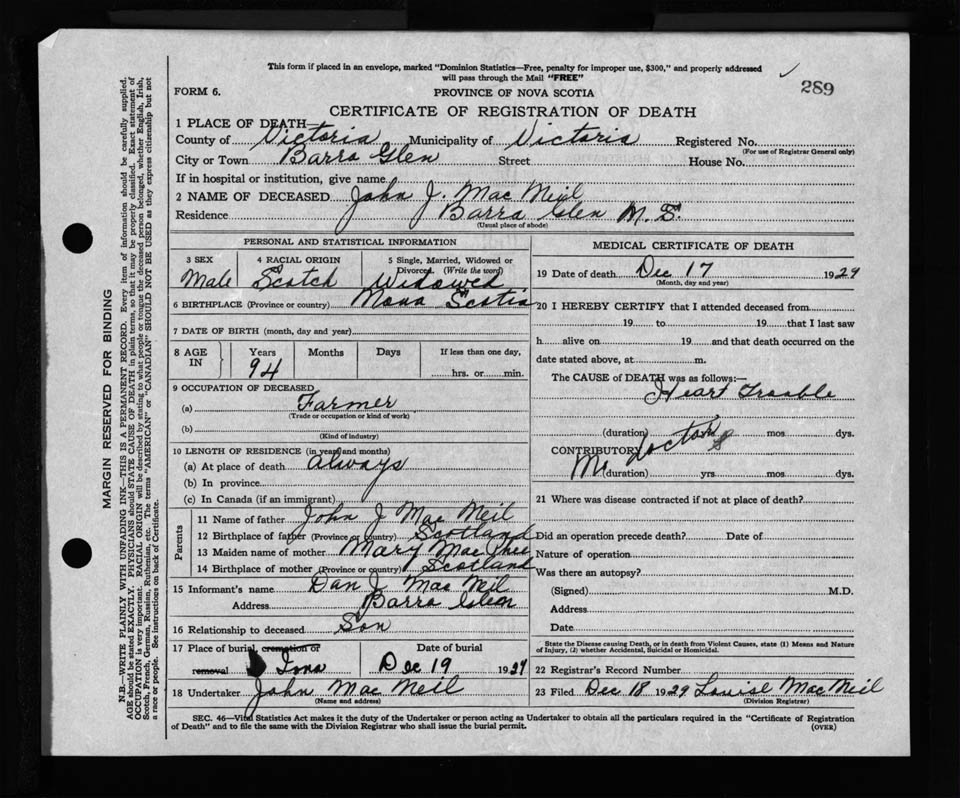 This form if placed in an envelope, marked "Dominion Statistics—Free, penalty for improper use, $300," and properly addressed
will pass through the Mail "FREE"
289
FORM 6.
PROVINCE OF NOVA SCOTIA
CERTIFICATE OF REGISTRATION OF DEATH
1 PLACE OF DEATH—
County of Victoria Municipality of Victoria Registered No.
(For use of Registrar General only)
City or Town Barra Glen Street House No.
If in hospital or institution, give name
2 NAME OF DECEASED John J. Mac Neil
Residence Barra Glen N.S.
(Usual place of abode)
PERSONAL AND STATISTICAL INFORMATION
3 SEX
Male
4 RACIAL ORIGIN
Scotch
5 Single, Married, Widowed or
Divorced. (Write the word)
Widowed
6 BIRTHPLACE (Province or country) Nova Scotia
7 DATE OF BIRTH (month, day and year)
8 AGE IN
Years Months Days If less than one day,
94 hrs. or min.
9 OCCUPATION OF DECEASED
(a) Farmer
(Trade or occupation or kind of work)
(b)
(Kind of industry)
10 LENGTH OF RESIDENCE (in years and months)
(a) At place of death always
(b) In province
(c) In Canada (if an immigrant)
Parents
11 Name of father John J Mac Neil
12 Birthplace of father (Province or country) Scotland
13 Maiden name of mother Mary Mac Phee
14 Birthplace of mother (Province or country) Scotland
15 Informant's name Dan J Mac Neil
Address Barra Glen
16 Relationship to deceased Son
17 Place of burial, cremation or removal Iona
Date of burial
Dec 19 1929
18 Undertaker John Mac Neil
(Name and address)
MEDICAL CERTIFICATE OF DEATH
19 Date of death Dec 17 1929
(Month, day and year)
20 I HEREBY CERTIFY that I attended deceased from
19 to 19 that I last saw
h alive on 19 and that death occurred on the
date stated above, at m.
The CAUSE of DEATH was as follows:—
Heart Trouble
(duration) yrs mos dys.
CONTRIBUTORY No doctor
(duration) yrs mos dys.
21 Where was disease contracted if not at place of death?
Did an operation precede death? Date of
Nature of operation
Was there an autopsy?
(Signed) M.D.
Address
Date
State the Disease causing Death, or in death from Violent Causes, state (1) Means and Nature
of Injury, (2) whether Accidental, Suicidal or Homicidal.
22 Registrar's Record Number
23 Filed Dec 18 1929 Louise MacNeil
(Division Registrar)
SEC. 46—Vital Statistics Act makes it the duty of the Undertaker or person acting as Undertaker to obtain all the particulars required in the "Certificate of Registration
of Death" and to file the same with the Division Registrar who shall issue the burial permit.
(OVER)
MARGIN RESERVED FOR BINDING
N.B.—WRITE PLAINLY WITH UNFADING INK—THIS IS A PERMANENT RECORD. Every item of information should be carefully supplied.
AGE should be stated EXACTLY. PHYSICIANS should STATE CAUSE OF DEATH in plain terms, so that it may be properly classified. Exact statement of
OCCUPATION is very important. RACIAL ORIGIN will be described by stating to what people or tongue the deceased person belonged, whether English, Irish,
Scotch, French, German, Russian, Ruthenian, etc. The terms "AMERICAN" or "CANADIAN" SHOULD NOT BE USED as they express citizenship but not
a race or people. See instructions on back of Certificate.